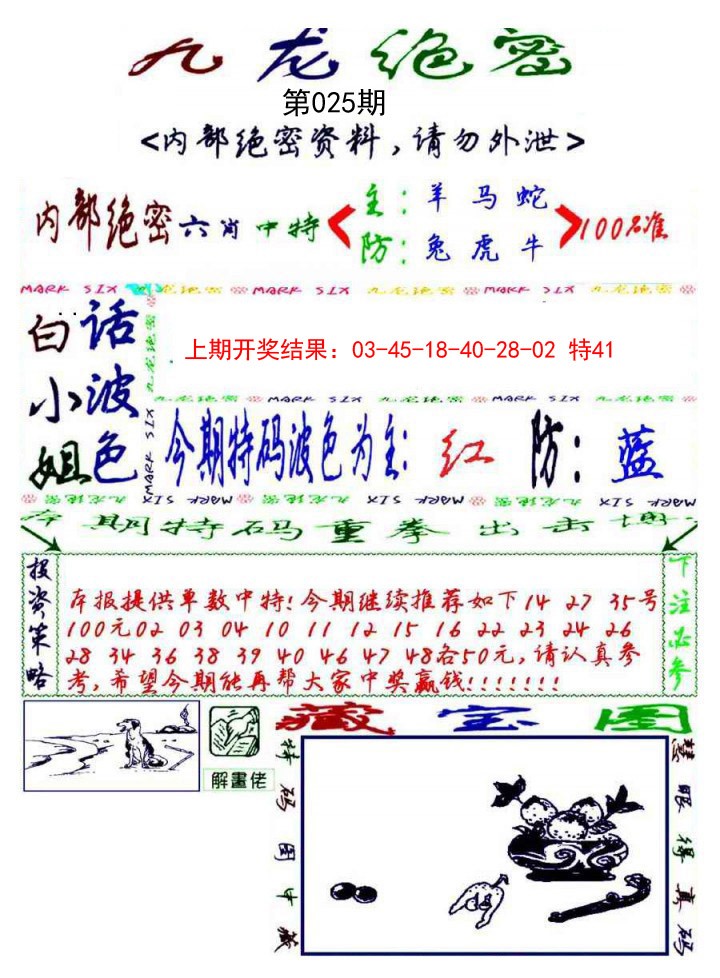 九龙绝密
第025期
<内部绝密资料,请勿外泄>
内部绝密六肖中特
主:羊 马 蛇
防:兔 虎 牛
100%准
MARK SIX 九龙绝密 MARK SIX 九龙绝密 MARK SIX 九龙绝密
白话
小波
姐色
九龙绝密
MARK SIX
上期开奖结果：03-45-18-40-28-02 特41
九龙绝密 MARK SIX 九龙绝密 MARK SIX 九龙绝密
今期特码波色为主:红 防:蓝
九龙绝密 MARK SIX 九龙绝密 MARK SIX 九龙绝密 MARK SIX
本期特码重拳出击博
投资策略
本报提供单数中特!今期继续推荐如下14 27 35号
100元02 03 04 10 11 12 15 16 22 23 24 26
28 34 36 38 39 40 46 47 48各50元,请认真参
考,希望今期能再帮大家中奖赢钱!!!!!!!
下注必参
解畫佬
藏宝图
特码图中藏
慧眼得真码